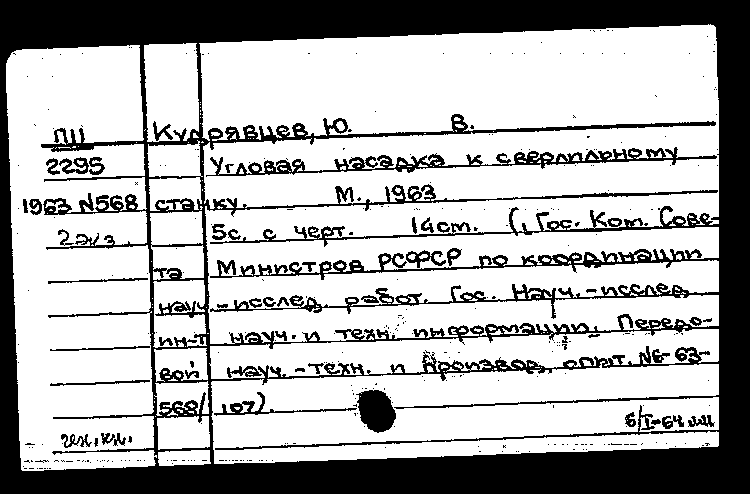 П11 Кудрявцев, Ю. В.
2295 Угловая насадка к сверлильному
1963 N568 станку. М., 1963
2 экз. 5с. с черт. 14 см. (Гос. Ком. Сове-
та Министров РСФСР по координации
науч.-исслед. работ. Гос. Науч.-исслед.
ин-т науч. и техн. информации. Передо-
вой науч.-техн. и производ. опыт. №6-63-
568/107).
6/I-64